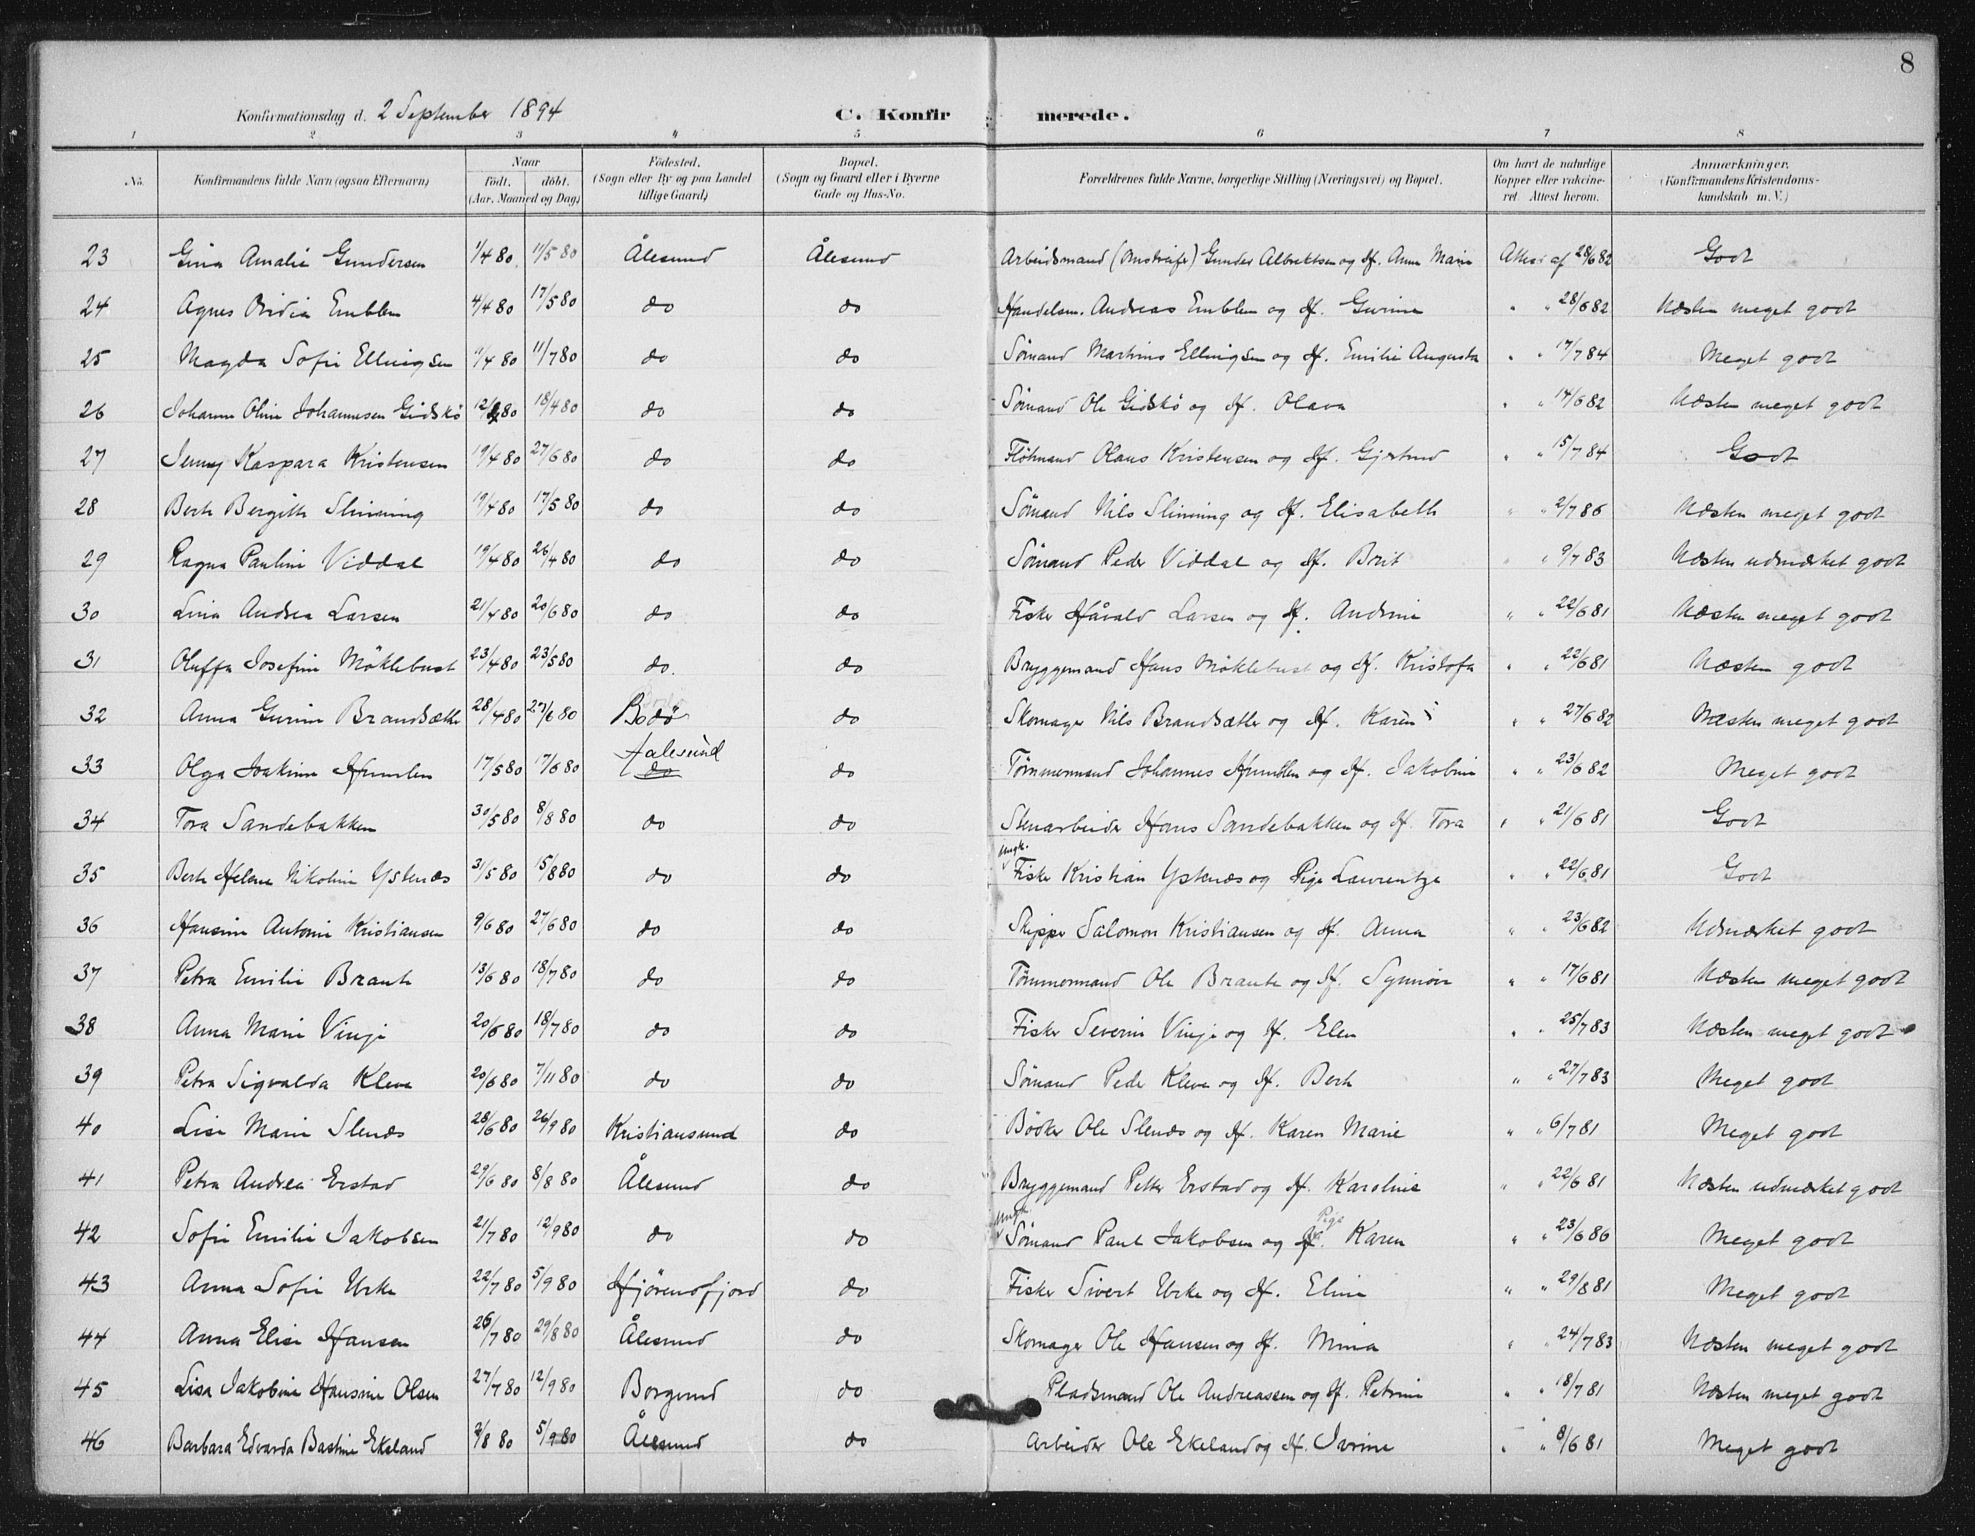 8
Konfirmationsdag d. 2 September 1894 C. Konfirmerede.
1 2 3 4 5 6 7 8
No. Konfirmandens fulde Navn (ogsaa Efternavn) Naar født. døbt. (Aar, Maaned og Dag) Födested. (Sogn eller By og paa Landet tillige Gaard) Bopæl. (Sogn og Gaard eller i Byerne Gade og Hus-No. Forældrenes fulde Navne, borgerlige Stilling (Næringsvei) og Bopæl. Om havt de naturlige Kopper eller vakcineret Attest herom. Anmærkninger. (Konfirmandens Kristendomskundskab m. V.)
23 Gina Amalie Gundersen 1/4 80 11/5 80 Ålesund Ålesund Arbeidsmand Gunder Albrektsen og Hf. Anne Marie Attest af 28/6 82 Godt
24 Agnes Ovidia Emblem 4/4 80 17/5 80 do do Handelsm. Andreas Emblem og Hf. Gurine " " 28/6 82 Næsten meget godt
25 Magda Sofie Ellingsen 9/4 80 11/7 80 do do Sømand Martinus Ellingsen og Hf. Emilie Augusta " " 17/7 84 Meget godt
26 Johanne Oline Johannesen Gidskö 12/4 80 18/4 80 do do Sømand Ole Gidskö og Hf. Olava " " 14/6 82 Næsten meget godt
27 Jenny Kaspara Kristensen 19/4 80 27/6 80 do do Fløtmand Olaus Kristensen og Hf. Gjertrud " " 15/7 84 Godt
28 Berte Bergitte Slinning 19/4 80 17/5 80 do do Sømand Nils Slinning og Hf. Elisabeth " " 2/7 86 Næsten meget godt
29 Ragna Pauline Viddal 19/4 80 26/4 80 do do Sømand Peder Viddal og Hf. Brit " " 9/7 83 Næsten udmærket godt
30 Lina Andrea Larsen 21/4 80 20/6 80 do do Fisker Håvald Larsen og Hf. Andrine " " 22/6 81 Næsten meget godt
31 Oluffa Josefine Möklebust 23/4 80 23/5 80 do. do Bryggemand Hans Möklebust og Hf. Kristofa " " 22/6 81 Næsten godt
32 Anna Gurine Brandsætte 28/4 80 27/6 80 Bodö do Skomager Nils Brandsætte og Hf. Karen " " 27/6 82 Næsten meget godt
33 Olga Joakime Humlen 17/5 80 17/6 80 Aalesund do do Tømmermand Johannes Humlen og Hf. Jakobine " " 23/6 82 Meget godt
34 Tora Sandebakken 30/5 80 8/8 80 do do Stenarbeider Hans Sandebakken og Hf. Tora " " 21/6 81 Godt
35 Berte Helene Nikoline Ystenæs 31/5 80 15/8 80 do do Ungk. Fisker Kristian Ystenæs og Pige Laurentze " " 22/6 81 Godt
36 Hansine Antonie Kristiansen 9/6 80 27/6 80 do do Skipper Salomon Kristiansen og Hf. Anna " " 23/6 82 Udmærket godt
37 Petra Emilie Braute 13/6 80 18/7 80 do do Tømmermand Ole Braute og Hf. Synnöve " " 17/6 81 Næsten meget godt
38 Anna Marie Vinje 20/6 80 18/7 80 do do Fisker Severin Vinje og Hf. Elen " " 25/7 83 Næsten meget godt
39 Petra Sigvalda Kleve 20/6 80 7/11 80 do do Sømand Peder Kleve og Hf. Berte " " 27/7 83 Meget godt
40 Lise Marie Slenæs 28/6 80 26/9 80 Kristiansund do Bödker Ole Slenæs og Hf. Karen Marie " " 6/7 81 Meget godt
41 Petra Andrea Erstad 29/6 80 8/8 80 Ålesund do Bryggemand Petter Erstad og Hf. Karoline " " 22/6 81 Næsten udmærket godt
42 Sofie Emilie Jakobsen 21/7 80 12/9 80 do do Ungk. Sømand Paul Jakobsen og Hf. Pige Karen " " 23/6 86 Meget godt
43 Anna Sofie Urke 22/7 80 5/9 80 Hjörensfjord do Fisker Sivert Urke og Hf. Eline " " 29/8 81 Meget godt
44 Anna Elise Hansen 26/7 80 29/8 80 Ålesund do Skomager Ole Hansen og Hf. Mina " " 24/7 83 Næsten meget godt
45 Lisa Jakobine Hansine Olsen 27/7 80 12/9 80 Borgund do Pladsmand Ole Andreassen og Hf. Petrine " " 18/7 81 Næsten meget godt
46 Barbara Edvarda Bastine Ekeland 2/8 80 5/9 80 Ålesund do Arbeider Ole Ekeland og Hf. Ivrine " " 8/6 81 Meget godt